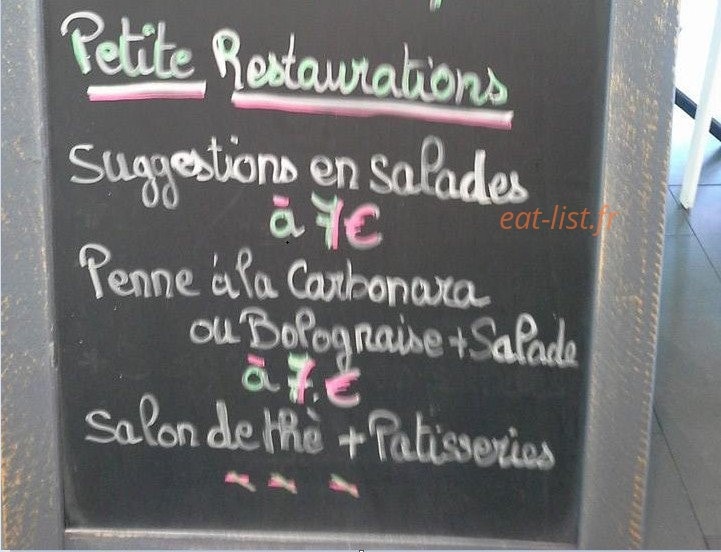 Petite Restaurations
Suggestions en Salades
à 7€
eat-list.fr
Penne à la Carbonara
ou Bolognaise + Salade
à 7.€
Salon de thè + Patisseries